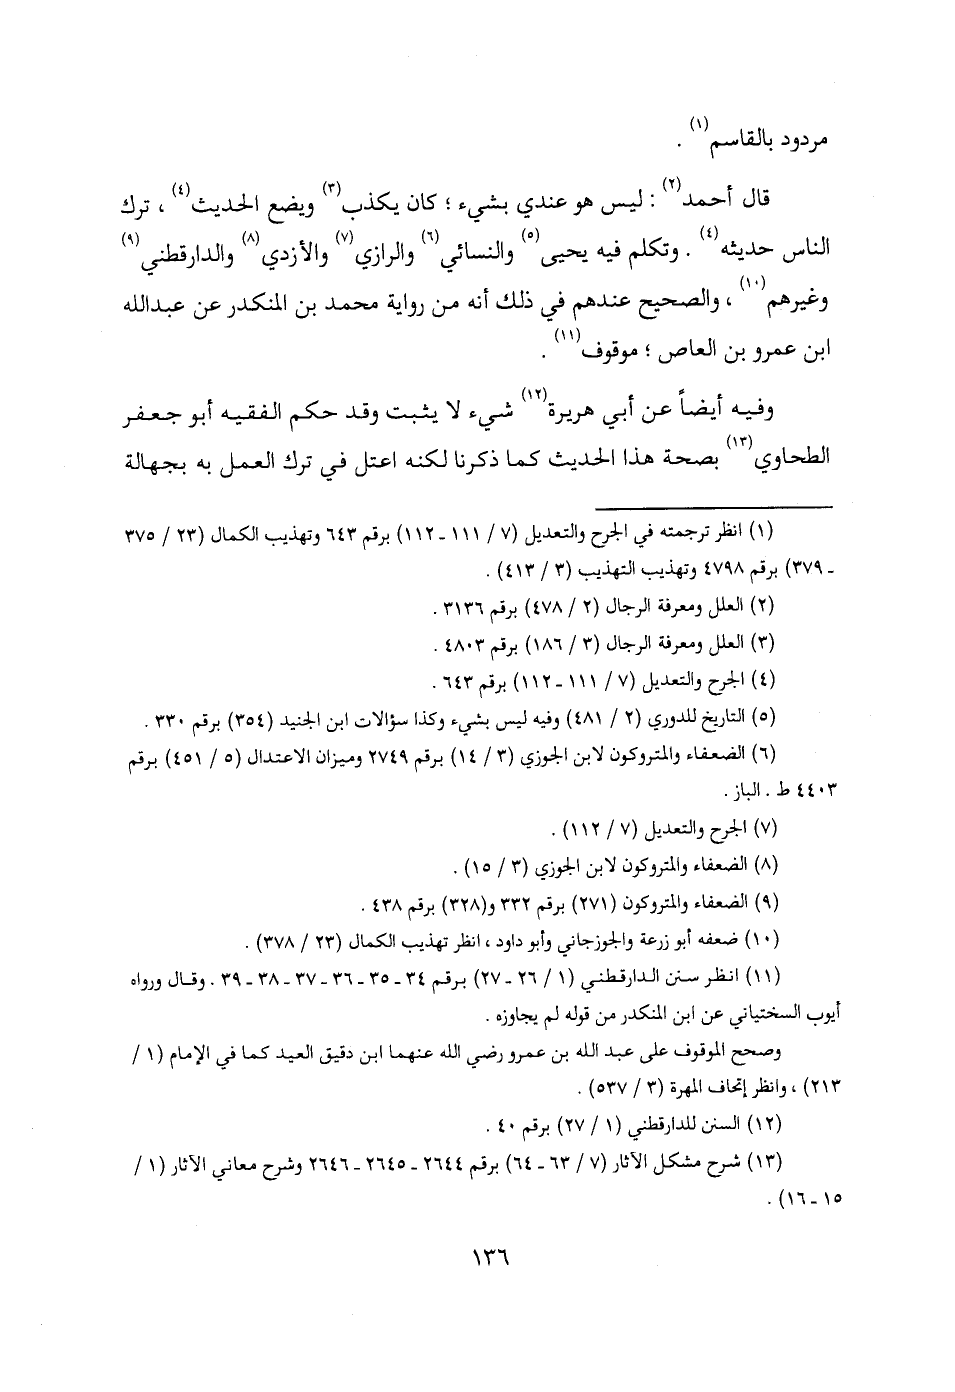 مردود بالقاسم(١) .
قال أحمد(٢) : ليس هو عندي بشيء ؛ كان يكذب(٣) ويضع الحديث(٤) ، ترك
الناس حديثه(٤) . وتكلم فيه يحيى(٥) والنسائي(٦) والرازي(٧) والأزدي(٨) والدارقطني(٩)
وغيرهم(١٠) ، والصحيح عندهم في ذلك أنه من رواية محمد بن المنكدر عن عبدالله
ابن عمرو بن العاص ؛ موقوف(١١) .
وفيه أيضاً عن أبي هريرة(١٢) شيء لا يثبت وقد حكم الفقيه أبو جعفر
الطحاوي(١٣) بصحة هذا الحديث كما ذكرنا لكنه اعتل في ترك العمل به بجهالة
(١) انظر ترجمته في الجرح والتعديل (٧ / ١١١ ـ ١١٢) برقم ٦٤٣ وتهذيب الكمال (٢٣ / ٣٧٥
ـ ٣٧٩) برقم ٤٧٩٨ وتهذيب التهذيب (٣ / ٤١٣) .
(٢) العلل ومعرفة الرجال (٢ / ٤٧٨) برقم ٣١٣٦ .
(٣) العلل ومعرفة الرجال (٣ / ١٨٦) برقم ٤٨٠٣ .
(٤) الجرح والتعديل (٧ / ١١١ ـ ١١٢) برقم ٦٤٣ .
(٥) التاريخ للدوري (٢ / ٤٨١) وفيه ليس بشيء وكذا سؤالات ابن الجنيد (٣٥٤) برقم ٣٣٠ .
(٦) الضعفاء والمتروكون لابن الجوزي (٣ / ١٤) برقم ٢٧٤٩ وميزان الاعتدال (٥ / ٤٥١) برقم
٤٤٠٣ ط . الباز .
(٧) الجرح والتعديل (٧ / ١١٢) .
(٨) الضعفاء والمتروكون لابن الجوزي (٣ / ١٥) .
(٩) الضعفاء والمتروكون (٢٧١) برقم ٣٣٢ و(٣٢٨) برقم ٤٣٨ .
(١٠) ضعفه أبو زرعة والجوزجاني وأبو داود ، انظر تهذيب الكمال (٢٣ / ٣٧٨) .
(١١) انظر سنن الدارقطني (١ / ٢٦ ـ ٢٧) برقم ٣٤ ـ ٣٥ ـ ٣٦ ـ ٣٧ ـ ٣٨ ـ ٣٩ . وقال ورواه
أيوب السختياني عن ابن المنكدر من قوله لم يجاوزه .
وصحح الموقوف على عبد الله بن عمرو رضي الله عنهما ابن دقيق العيد كما في الإمام (١ /
٢١٣) ، وانظر إتحاف المهرة (٣ / ٥٣٧) .
(١٢) السنن للدارقطني (١ / ٢٧) برقم ٤٠ .
(١٣) شرح مشكل الآثار (٧ / ٦٣ ـ ٦٤) برقم ٢٦٤٤ ـ ٢٦٤٥ ـ ٢٦٤٦ وشرح معاني الآثار (١ /
١٥ ـ ١٦) .
١٣٦